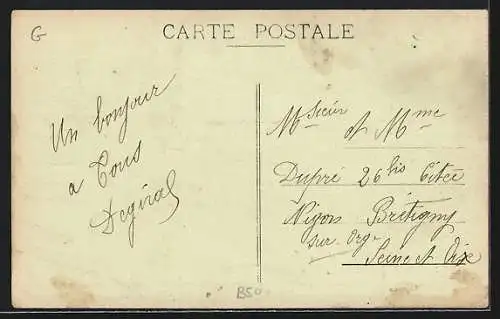 G
CARTE POSTALE
Un bonjour
a Tous
Degiral
Msieur et Mme
Dupré 26 bis Citée
Nigon Bretigny
sur Orge
Seine et Oise
B50